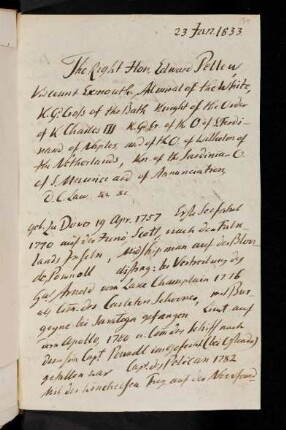 23 Jan 1833
The Right Hon. Edward Pellew
Viscount Exmouth, Admiral of the White,
K. Gr. Cross of the Bath Knight of the Order
of K Charles III K. Gr. Cr. of the O. of S. Ferdi-
nand of Naples, and of the O. of Wilhelm of
the Netherlands, Kn. of the Sardinian O
of S. Maurice and of Annunciation,
D.C. Law &c &c
geb. zu Dover 19 Apr. 1757 Erste Seefahrt
1770 auf der Juno, Scott, nach den Falk-
lands Inseln, Midshipman auf der Blon-
de Pownoll
Gen. Arnold vom Lake Champlain 1776
als Com. des Carleton Schooner, mit Bur-
goyne bei Saratoga gefangen Lieut. auf
dem Apollo, 1780 u. Com. der Schiff nach
dem sein Capt. Pownoll (bei Ostende)
gefallen war Capt. des Pelican 1782
Mit der Winchelsea Freg. auf der